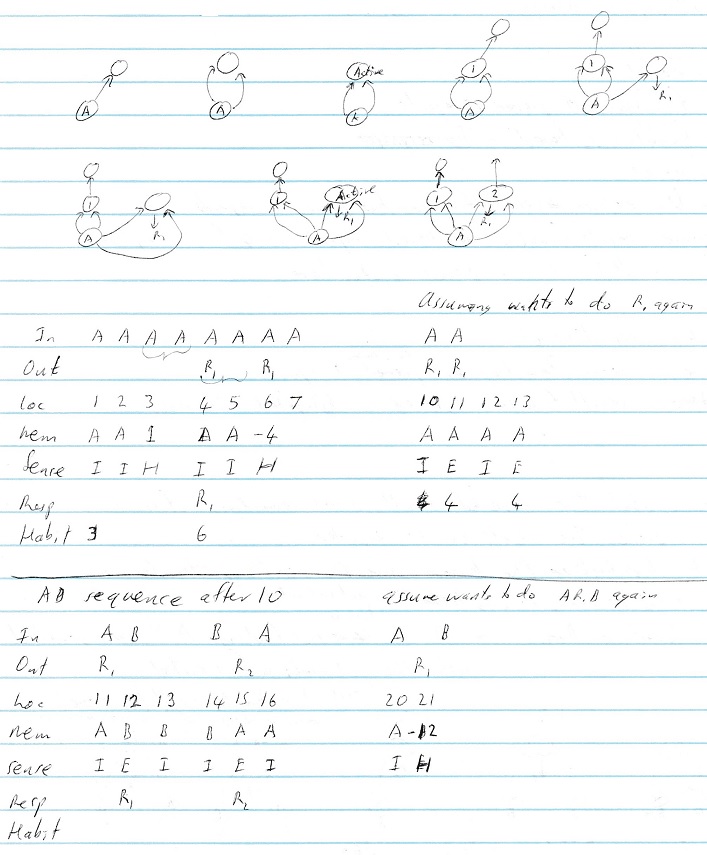 A A Active A 1 A 1 A R1
1 A R1 1 A Active R1 1 2 A R1
Assuming wants to do R1 again
In A A A A A A A A A A
Out R1 R1 R1 R1
Loc 1 2 3 4 5 6 7 10 11 12 13
Mem A A 1 A A -4 A A A A
Sense I I H I I H I E I E
Resp R1 4 4
Habit 3 6
AB sequence after 10 assume wants to do AR1B again
In A B B A A B
Out R1 R2 R1
Loc 11 12 13 14 15 16 20 21
Mem A B B B A A A -12
Sense I E I I E I I H
Resp R1 R2
Habit